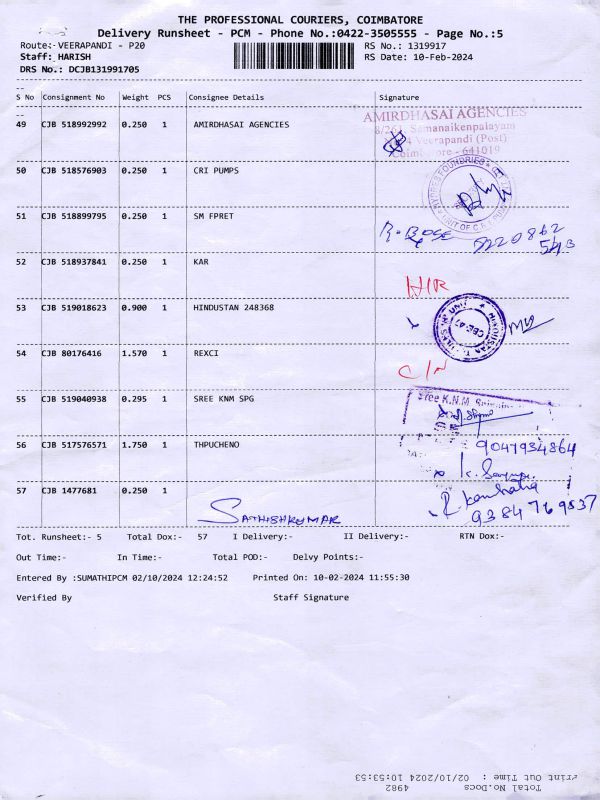 THE PROFESSIONAL COURIERS, COIMBATORE
Delivery Runsheet - PCM - Phone No.:0422-3505555 - Page No.:5
Route:-VEERAPANDI - P20
RS No.: 1319917
Staff: HARISH
RS Date: 10-Feb-2024
DRS No.: DCJB131991705
S No Consignment No Weight PCS Consignee Details Signature
49 CJB 518992992 0.250 1 AMIRDHASAI AGENCIES
AMIRDHASAI AGENCIES
Samanaikenpalayam
Veerapandi (Post)
Coimbatore - 641019
50 CJB 518576903 0.250 1 CRI PUMPS
51 CJB 518899795 0.250 1 SM FPRET
R. Bose 7220862
52 CJB 518937841 0.250 1 KAR
HR
53 CJB 519018623 0.900 1 HINDUSTAN 248368
54 CJB 80176416 1.570 1 REXCI
C/N
55 CJB 519040938 0.295 1 SREE KNM SPG
Sree K.N.M.
56 CJB 517576571 1.750 1 THPUCHENO
9047934864
57 CJB 1477681 0.250 1
SATHISHKUMAR
9384769837
Tot. Runsheet:- 5 Total Dox:- 57 I Delivery:- II Delivery:- RTN Dox:-
Out Time:- In Time:- Total POD:- Delvy Points:-
Entered By :SUMATHIPCM 02/10/2024 12:24:52 Printed On: 10-02-2024 11:55:30
Verified By Staff Signature
Total No.Docs : 4982
Print Out Time : 02/10/2024 10:53:53